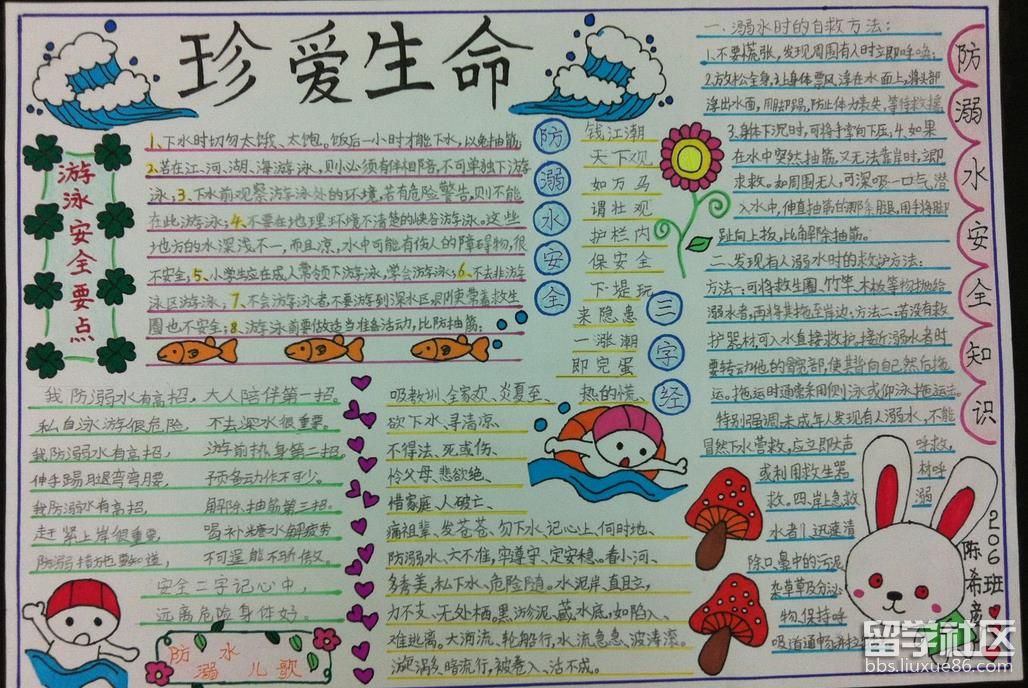 珍爱生命
游泳安全要点
1、下水时切勿太饿、太饱。饭后一小时才能下水,以免抽筋;
2、若在江、河、湖、海游泳,则必须有伴相陪,不可单独下游
泳;3、下水前观察游泳处的环境,若有危险警告,则不能
在此游泳;4、不要在地理环境不清楚的峡谷游泳。这些
地方的水深浅不一,而且凉,水中可能有伤人的障碍物,很
不安全;5、小学生应在成人带领下游泳,学会游泳;6、不去非游
泳区游泳;7、不会游泳者不要游到深水区,即使带着救生
圈也不安全;8、游泳前要做适当准备活动,比防抽筋;
防溺水安全三字经
钱江潮
天下观
如万马
谓壮观
护栏内
保安全
下堤玩
来隐患
一涨潮
即完蛋
热的慌、
吸教训、全家欢、炎夏至、
欲下水、寻清凉、
不得法、死或伤、
怜父母、悲欲绝、
惜家庭、人破亡、
痛祖辈、发苍苍、勿下水、记心上、何时地、
防溺水、六不准,牢遵守、定安稳。看小河、
多秀美,私下水、危险随。水泥岸、直且立,
力不支、无处栖。黑淤泥、藏水底,如陷入、
难逃离。大海流、轮船行,水流急、波涛深。
游漩涡、暗流行,被卷入、活不成。
我防溺水有高招,大人陪伴第一招。
私自泳游很危险,不去深水很重要。
我防溺水有高招,游前热身第二招。
伸手踢腿弯弯腰,预备动作不可少。
我防溺水有高招,解除抽筋第三招。
赶紧上岸很重要,喝补糖水解疲劳
防溺措施要知道,不可逞能不骄傲。
安全二字记心中,
远离危险身体好。
防溺水儿歌
防溺水安全知识
一、溺水时的自救方法:
1、不要慌张,发现周围有人时立即呼唤;
2、放松全身,让身体飘浮在水面上,将头部
浮出水面,用脚踢,防止体力丧失,等待救援
3、身体下沉时,可将手掌向下压;4、如果
在水中突然抽筋,又无法靠岸时,立即
求救。如周围无人,可深吸一口气潜
入水中,伸直抽筋的那条腿,用手将脚
趾向上扳,比解除抽筋。
二、发现有人溺水时的救护方法:
方法一:可将救生圈、竹竿、木板等物抛给
溺水者,再将其拖至岸边;方法二:若没有救
护器材,可入水直接救护,接近溺水者时
要转动他的髋部,使其背向自己然后拖
运。拖运时通常采用侧泳或仰泳拖运法。
特别强调:未成年人发现有人溺水,不能
冒然下水营救,应立即大声呼救,
或利用救生器材呼
救。四、岸上急救溺
水者1、迅速清
除口、鼻中的污泥
杂草及分泌
物,保持呼
吸道通畅
206班
陈希
留学社区
bbs.liuxue86.com